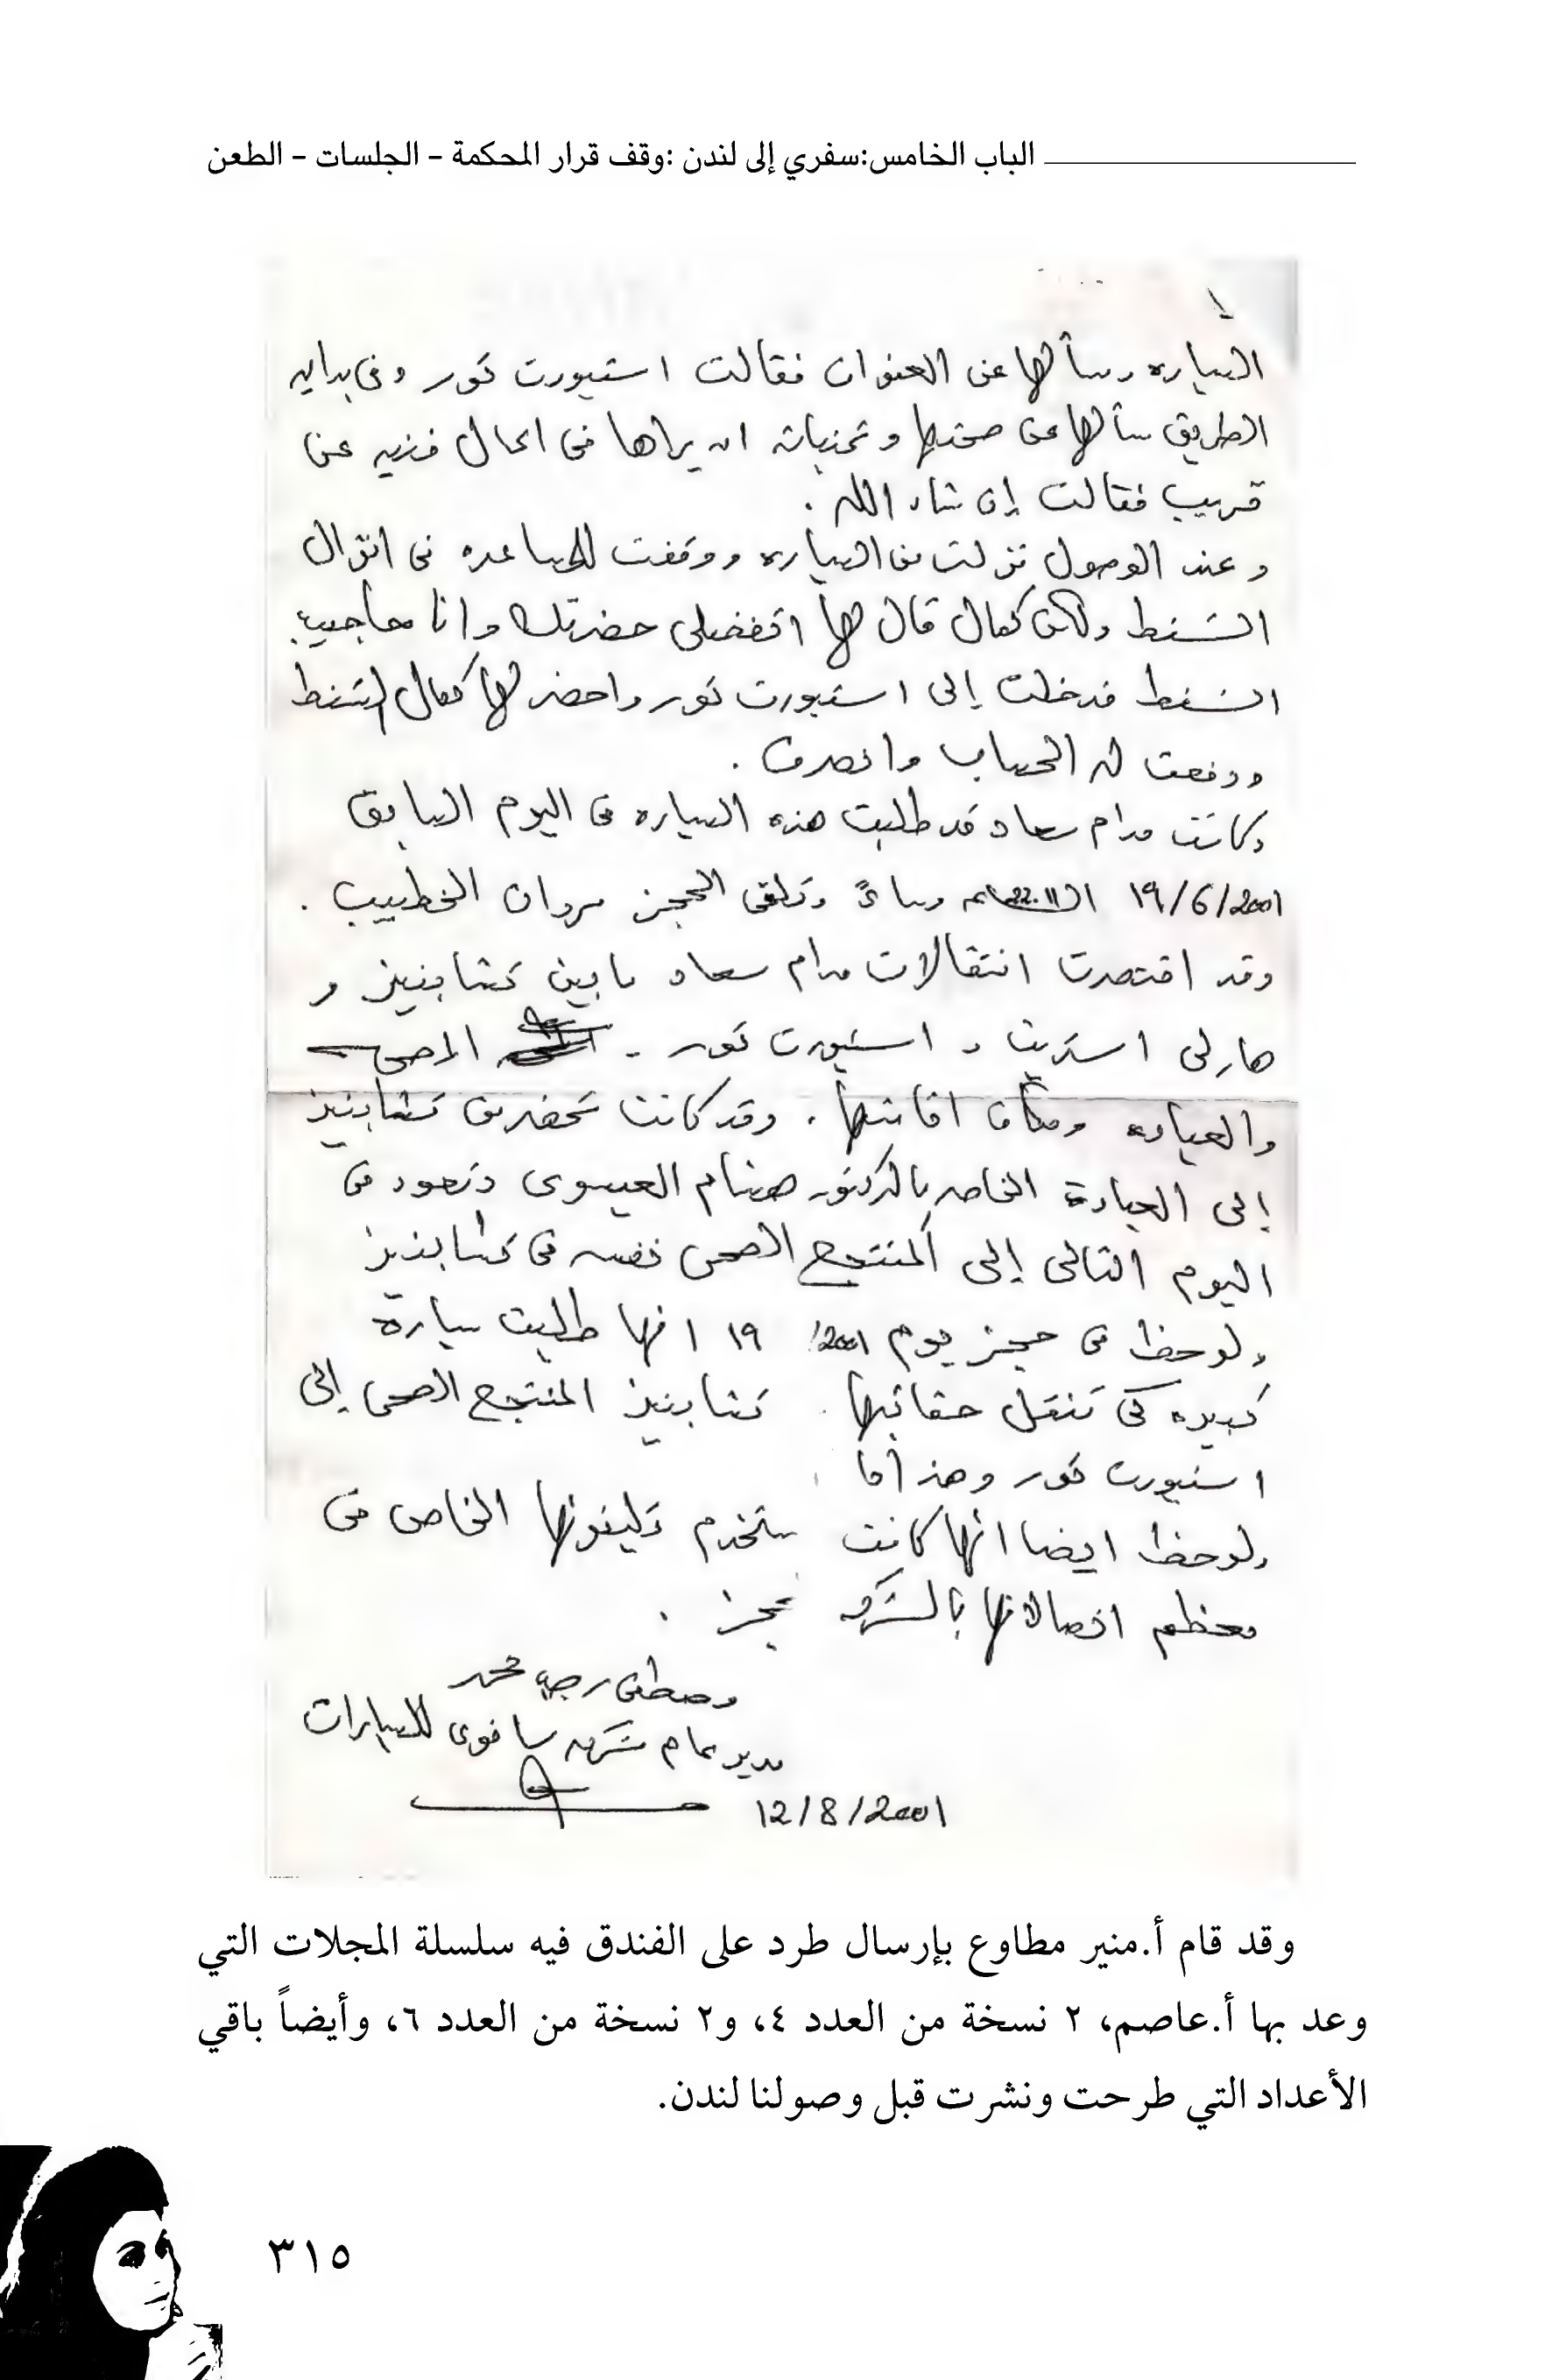 الباب الخامس:سفري إلى لندن :وقف قرار المحكمة – الجلسات – الطعن
السياره وسألها عن العنوان فقالت استيورت تور وفى بدايه
الطريق سألها عن صحتها وتمنياته ان يراها فى احال فنيه عن
قريب فقالت إن شاء الله .
وعند الوصول نزلت من السياره ووقفت للمساعده فى انزال
الشنط ولكن كمال قال لها اتفضلى حضرتك وانا هاجيب
الشنط فدخلت إلى استيورت تور واحضر لها كمال الشنط
ودفعت له الحساب وانصرف .
وكانت مدام سعاد قد طلبت هذه السياره فى اليوم السابق
١٩/6/2001 مساءً وتلقى الحجز مروان الخطيب .
وقد اقتصرت انتقالات مدام سعاد ما بين تشابنيز و
هارلى استريت و استيورت تور - المصحى
والعياده ومكان اقامتها . وقد كانت تحضر من تشابنيز
إلى العيادة الخاصه بالدكتور هشام العيسوى وتعود فى
اليوم التالى إلى المنتجع الصحى نفسه فى تشابنيز
ولوحظ فى حجز يوم ١٩ /2001 انها طلبت سيارة
كبيره كى تنقل حقائبها . تشابنيز المنتجع الصحى إلى
استيورت تور
ولوحظ ايضا انها كانت ستخدم تليفونها الخاص فى
معظم اتصالاتها بالشركه .
مصطفى رجب محمد
مدير عام شركه سافوى للسيارات
12/8/2001
وقد قام أ.منير مطاوع بإرسال طرد على الفندق فيه سلسلة المجلات التي
وعد بها أ.عاصم، ٢ نسخة من العدد ٤، و٢ نسخة من العدد ٦، وأيضاً باقي
الأعداد التي طرحت ونشرت قبل وصولنا لندن.
٣١٥